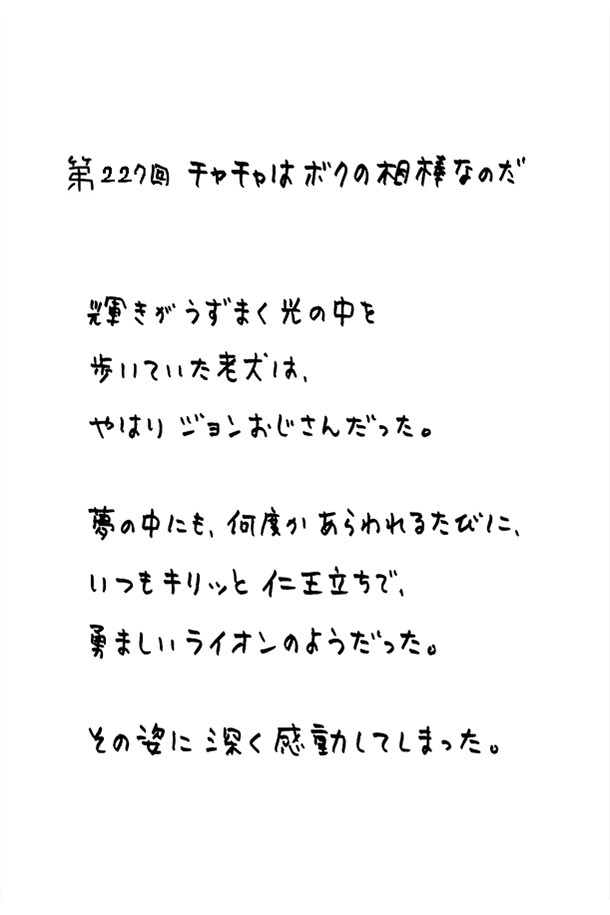 第227回 チャチャはボクの相棒なのだ
輝きがうずまく光の中を
歩いていた老犬は、
やはり ジョンおじさんだった。
夢の中にも、何度か あらわれるたびに、
いつもキリッと 仁王立ちで、
勇ましいライオンのようだった。
その姿に 深く感動してしまった。